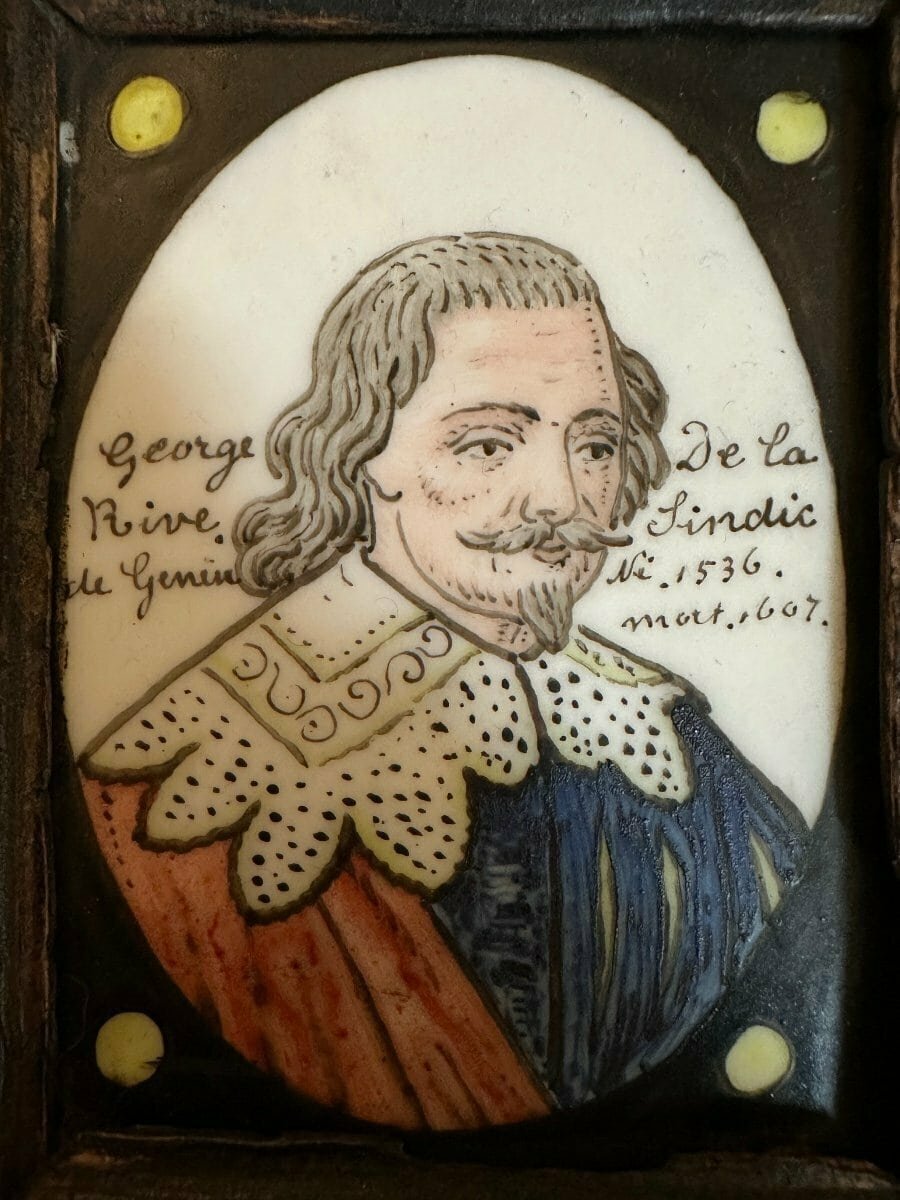 George De la
Rive. Sindic
de Genèv Né. 1536.
mort. 1607.